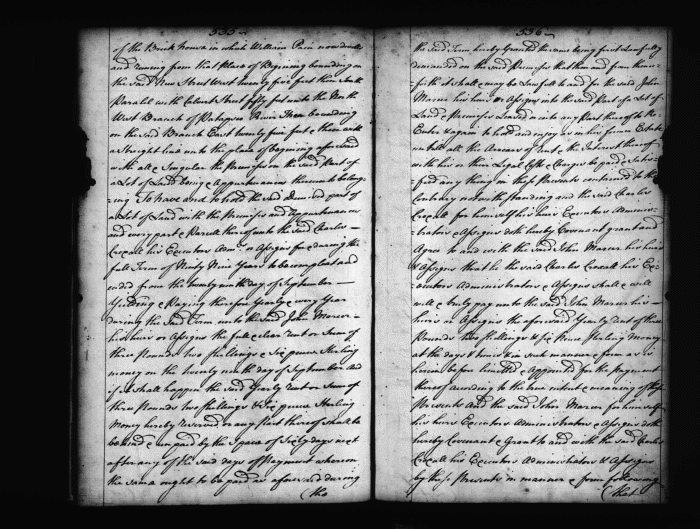 335
of the Brick House in which William Pain now dwells
and running from that Place of Begining bounding on
the said New Street West twenty five feet then North
Paralel with Calvert Street fifty feet unto the North
West Branch of Patapsco River Then bounding
on the said Branch East twenty five feet & then with
a straight line unto the place of begining aforesaid
with all & Singular the Premises on the said Part of
a Lot of Land being & Appurtenances thereunto belong-
-ing To have and to hold the said demised part of
a Lot of Land with the Premises and Appurtenances
and every part & Parcell thereof unto the said Charles
Croxall his Executors Adm.rs or Assigns for & during the
full Term of Ninty Nine Years to be compleat and
ended from the twenty ninth day of September
Yielding & Paying therefor Yearly & every Year
during the said Term unto the said John Mercer
his heirs or Assigns the full & clear Rent or Sum of
three Pounds two shillings & six pence Sterling
money on the twenty ninth day of September And
if it shall happen the said Yearly Rent or Sum of
three Pounds two shillings & Six pence Sterling
Money hereby reserved or any Part thereof shall be
behind & unpaid by the Space of Sixty days next
after any of the said days of Payment whereon
the same ought to be paid as aforesaid during
(the
336
the said Term hereby Granted the same being first Lawfully
demanded on the said Premises that then and from thence-
-forth it shall & may be Lawfull to and for the said John
Mercer his heirs or Assigns into the said Part of a Lot of
Land & Premises Leased or into any Part thereof to Re
Enter & again to hold and enjoy as in his former Estate
untill all the Arrears of Rent & the Interest thereof
with his or their Legal Costs & Charges be paid & Satis-
-fied any thing in these Presents contained to the
Contrary notwithstanding and the said Charles
Croxall for himself his heirs Executors Adminis-
-trators & Assigns doth hereby Covenant grant and
Agree to and with the said John Mercer his heirs
& Assigns that he the said Charles Croxall his Exe-
-cutors Administrators & Assigns shall & will
well & truly pay unto the said John Mercer his
heirs or Assigns the aforesaid Yearly Rent of three
Pounds two shillings & Six Pence Sterling Money
at the days & times & in such manner form as is
herein before limitted & Appointed for the payment
thereof according to the true intent & meaning of these
Presents And the said John Mercer for himself
his heirs Executors Administrators & Assigns doth
hereby Covenant & Grant to and with the said Charles
Croxall his Executors Administrators & Assigns
by these Presents in manner & form following
(that